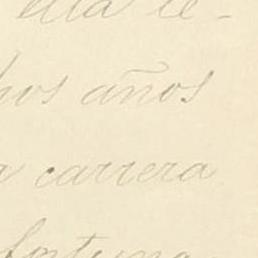 ella le-
hos años
a carrera
fortuna